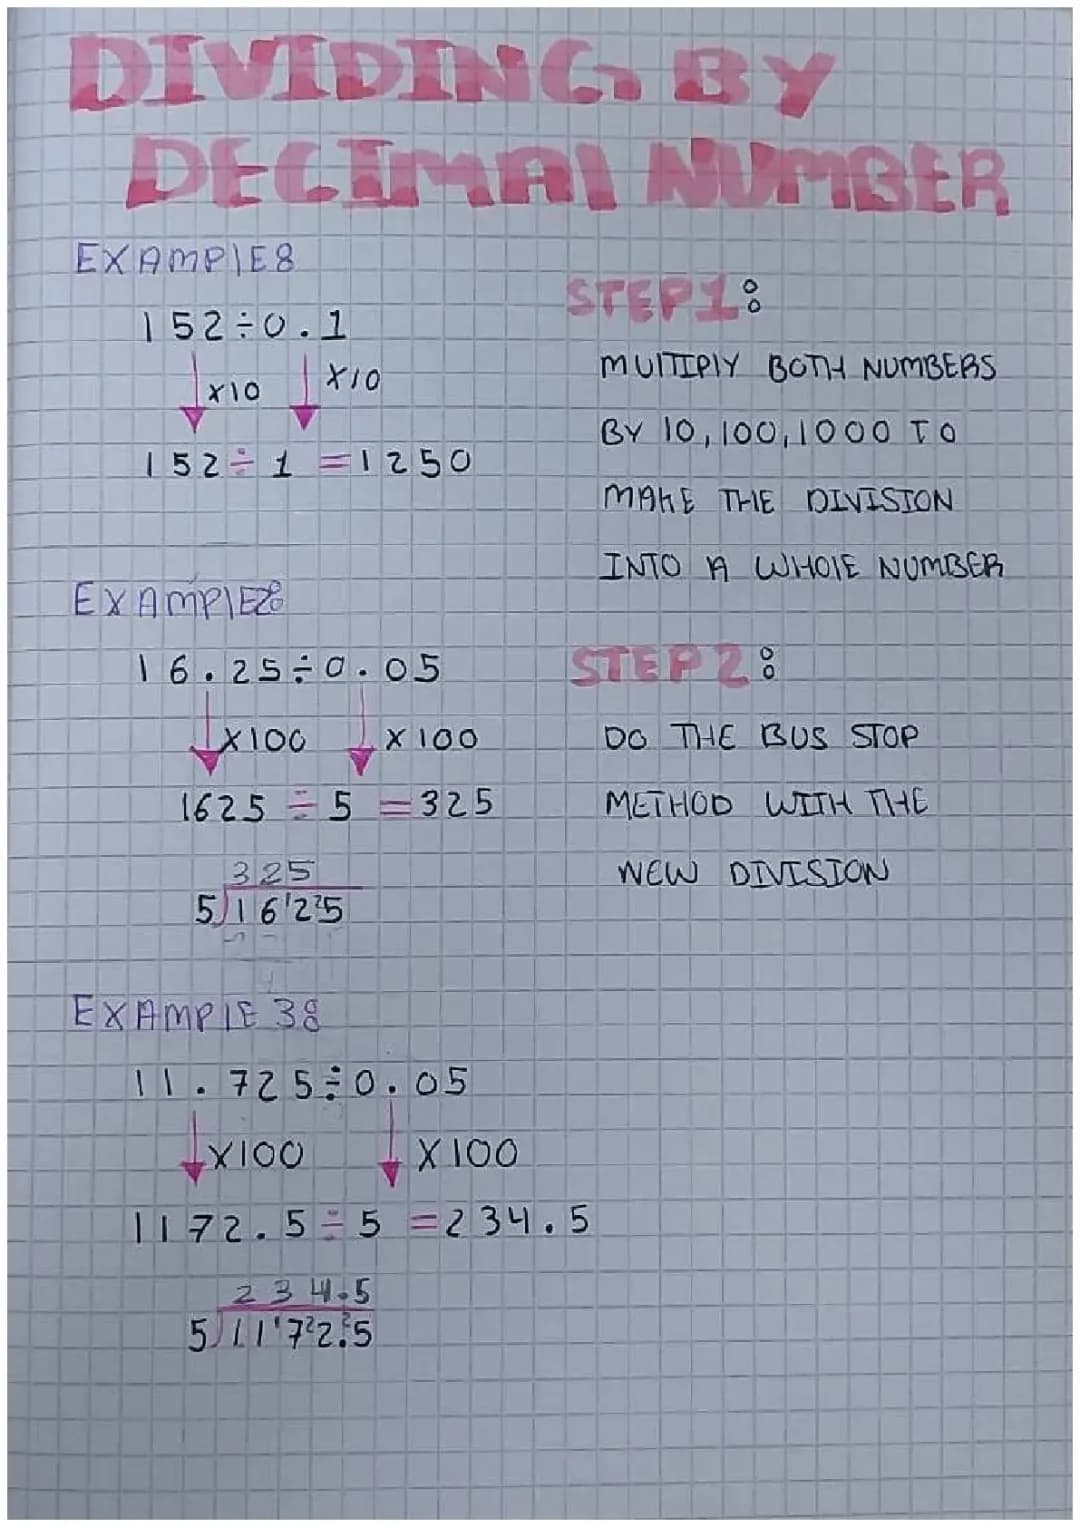 DIVIDING BY
DECIMAL NUMBER
EXAMPLE:
152÷0.1
x10 x10
152÷1 =1250
EXAMPLE2:
16.25÷0.05
x100 x100
1625÷5 =325
325
5)16¹2²5
EXAMPLE 3:
11.725÷0.05
x100 x100
1172.5÷5 =234.5
234.5
5)11¹7²2.²5
STEP1:
MULTIPLY BOTH NUMBERS
BY 10,100,1000 TO
MAKE THE DIVISION
INTO A WHOLE NUMBER
STEP 2:
DO THE BUS STOP
METHOD WITH THE
NEW DIVISION